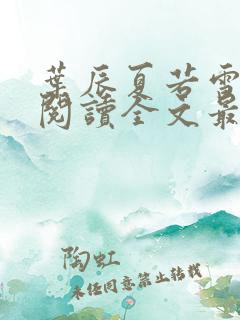 葉辰夏若雪
閱讀全文最
陶虹
未经同意禁止转载